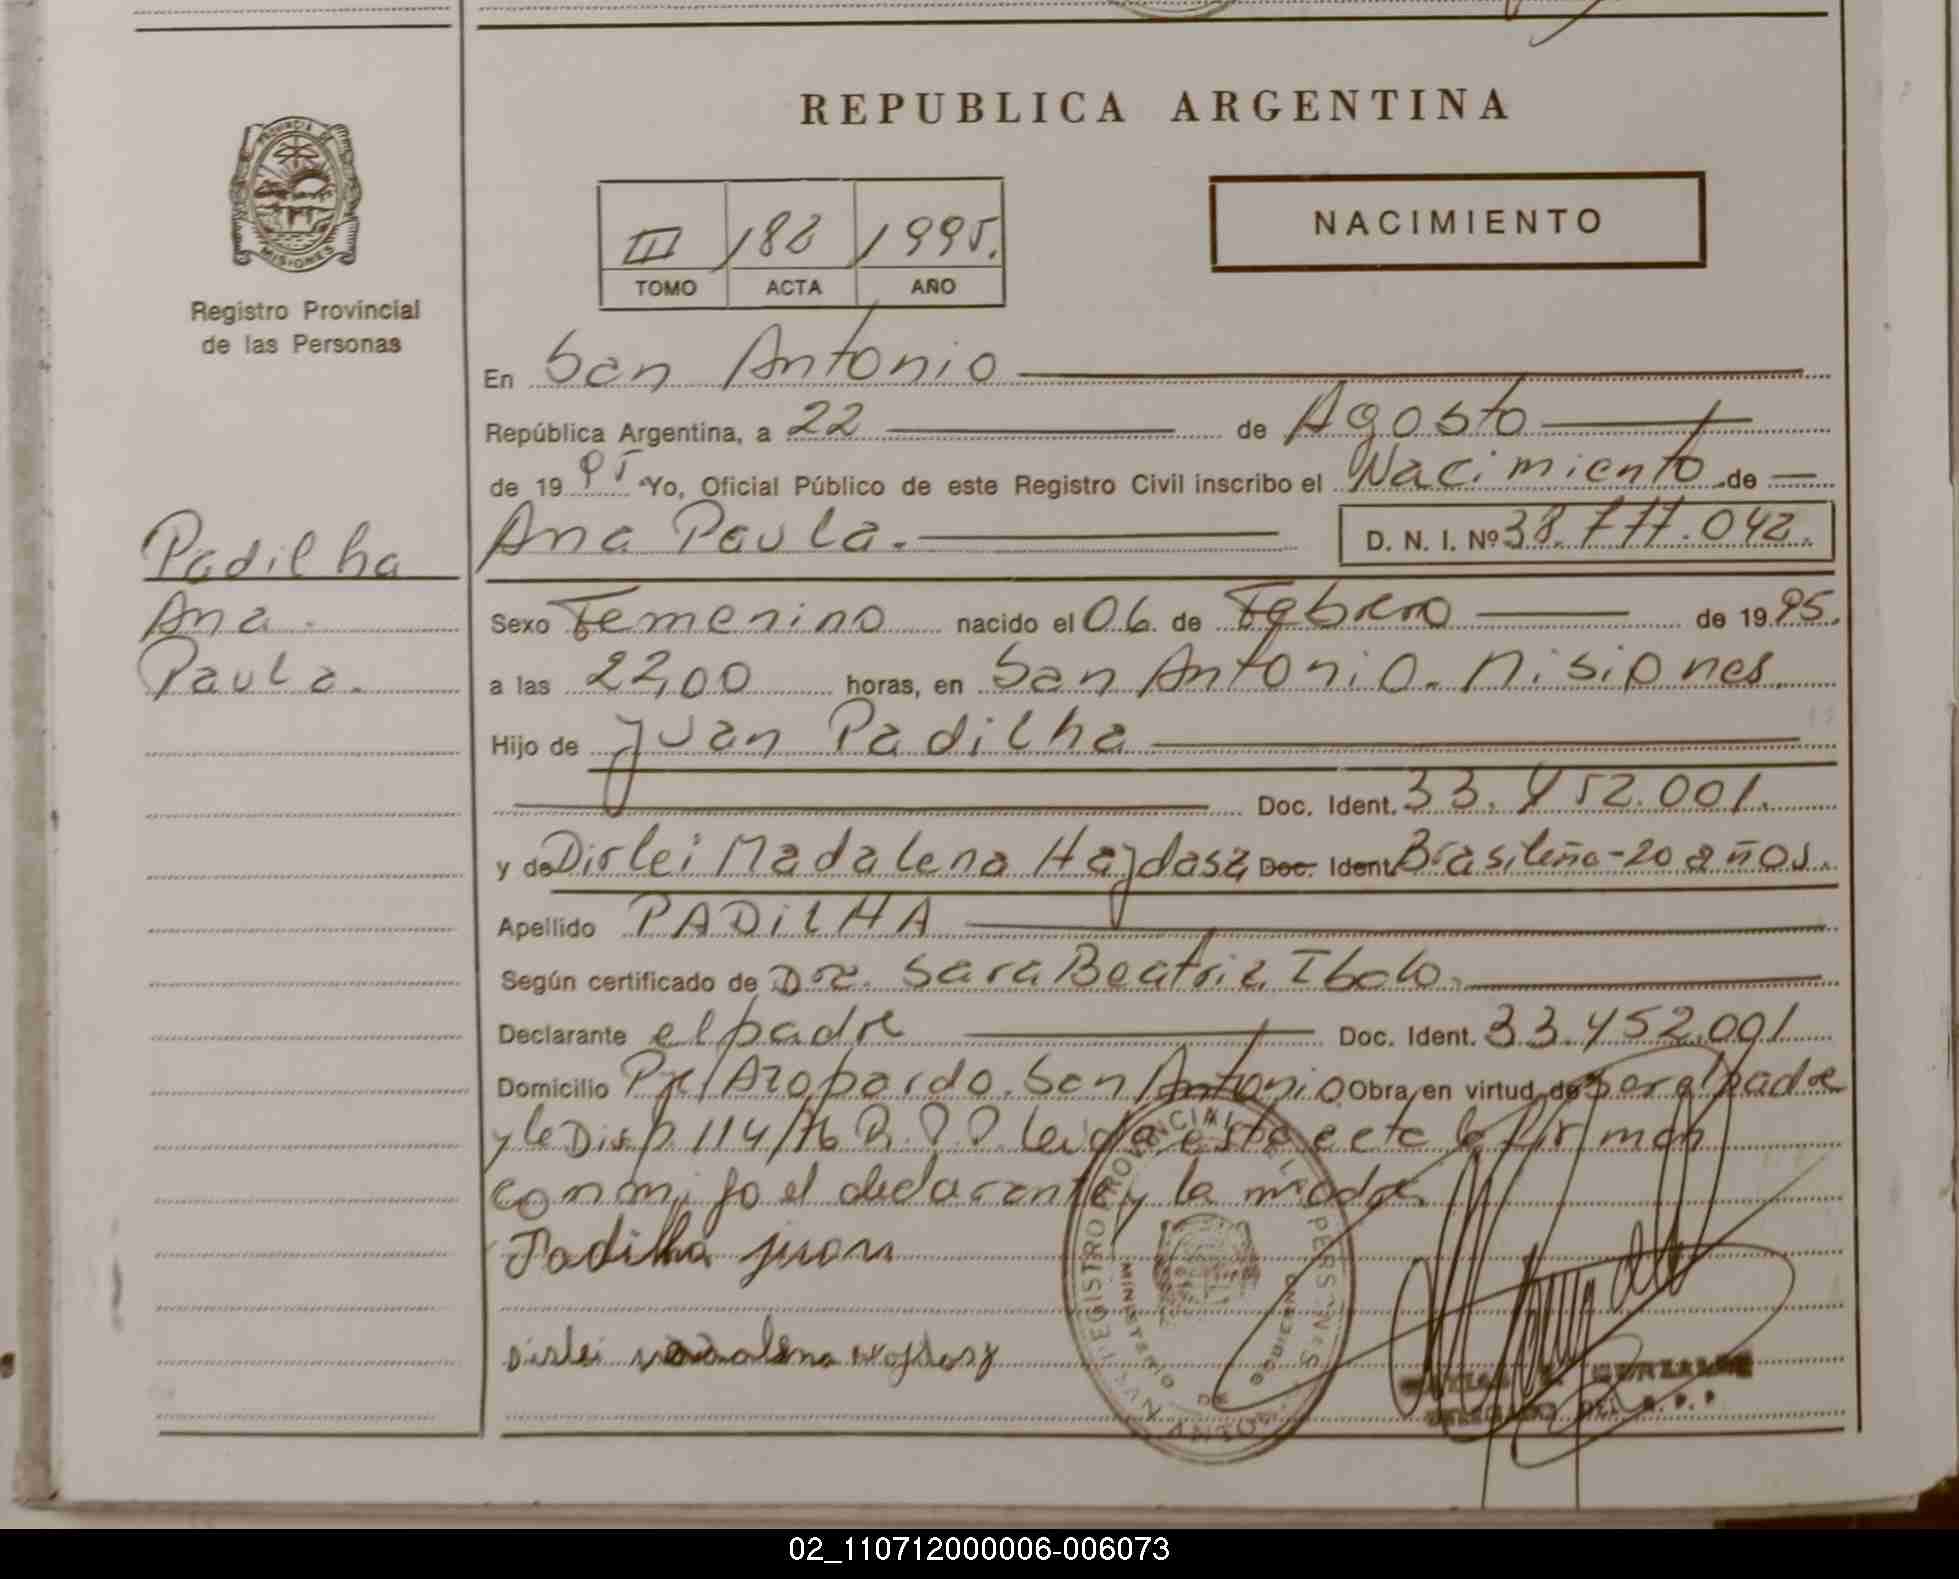 REPUBLICA ARGENTINA
PROVINCIA DE
MISIONES
Registro Provincial
de las Personas
NACIMIENTO
III 188 1995.
TOMO ACTA AÑO
En San Antonio
República Argentina, a 22 de Agosto
de 19 95 Yo, Oficial Público de este Registro Civil inscribo el Nacimiento de
Padilha
Ana
Paula.
Ana Paula. D. N. I. Nº 38.777.042.
Sexo Femenino nacido el 06 de Febrero de 19 95.
a las 22,00 horas, en San Antonio. Misiones.
Hijo de Juan Padilha
Doc. Ident. 33.452.001.
y de Dirlei Madalena Hajdasz Doc. Ident. Brasileña-20 años.
Apellido PADILHA
Según certificado de Dra. Sara Beatriz
Declarante el padre Doc. Ident. 33.452.001
Domicilio Pje/Azopardo. San Antonio Obra en virtud de Ser el padre
y la Disp. 114/76 R.P.P. leida esta acta la firman
conmigo el declarante y la madre.
Padilha Juan
Dirlei Madalena
REGISTRO PROVINCIAL DE L PERS N S
MINISTERIO DE GOBIERNO
GONZALEZ
DELEGADO DEL R.P.P
02_110712000006-006073